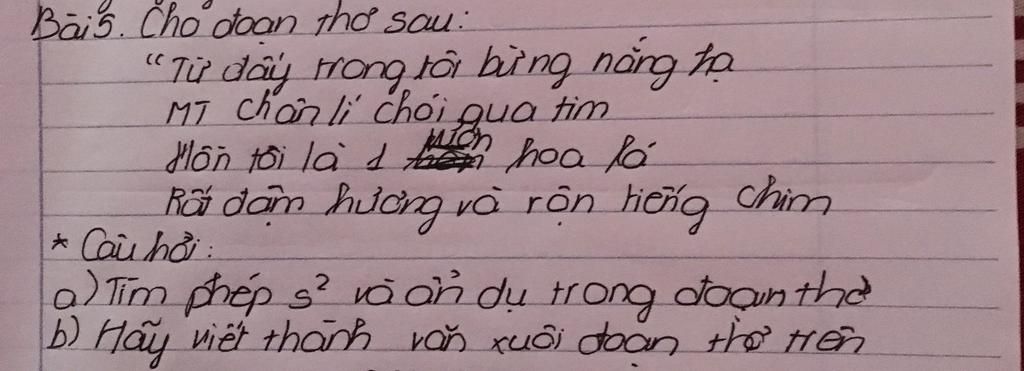 Bài 5. Cho đoạn thơ sau:
"Từ đấy trong tôi bừng nắng hạ
MT chân lí chói qua tim
Hồn tôi là 1 vườn hoa lá
Rất đậm hương và rộn tiếng chim
* Câu hỏi:
a) Tìm phép s² và ẩn dụ trong đoạn thơ
b) Hãy viết thành văn xuôi đoạn thơ trên